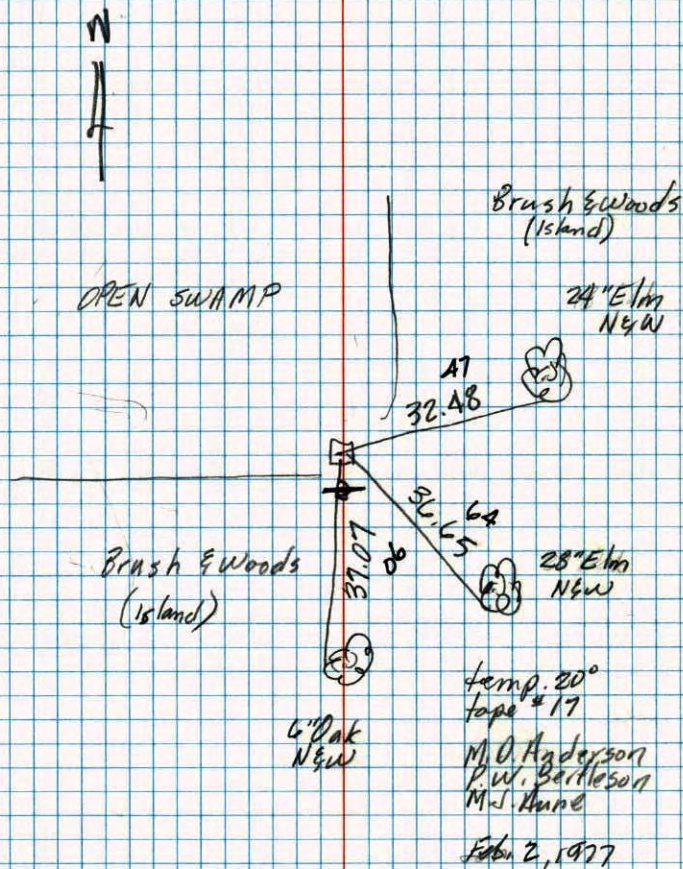 N
Brush & Woods
(Island)
OPEN SWAMP
24" Elm
N&W
47
32.48
36.65
64
37.07
06
28" Elm
N&W
Brush & Woods
(Island)
6" Oak
N&W
temp. 20°
tape #17
M.O. Anderson
P.W. Bertleson
M.J.
Feb. 2, 1977